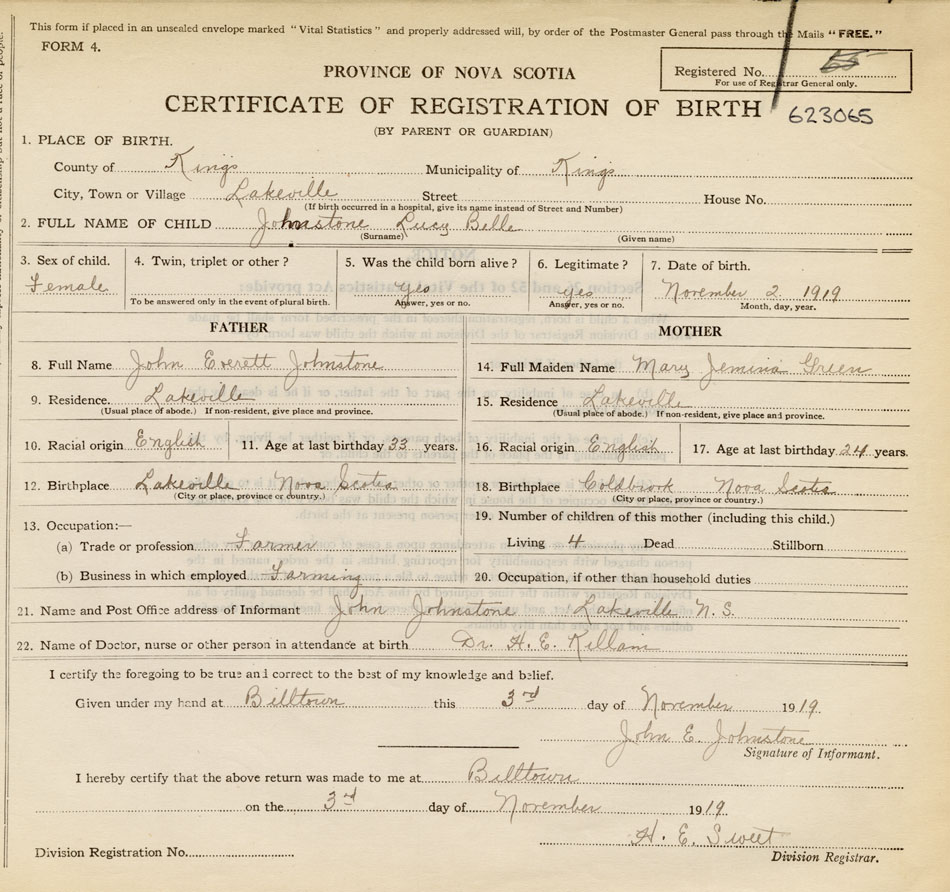 This form if placed in an unsealed envelope marked "Vital Statistics" and properly addressed will, by order of the Postmaster General pass through the Mails "FREE."
FORM 4.
Registered No. 65
For use of Registrar General only.
PROVINCE OF NOVA SCOTIA
CERTIFICATE OF REGISTRATION OF BIRTH
623065
(BY PARENT OR GUARDIAN)
1. PLACE OF BIRTH.
County of Kings Municipality of Kings
City, Town or Village Lakeville Street House No.
(If birth occurred in a hospital, give its name instead of Street and Number)
2. FULL NAME OF CHILD Johnstone Lucy Belle
(Surname) (Given name)
3. Sex of child. 4. Twin, triplet or other? 5. Was the child born alive? 6. Legitimate? 7. Date of birth.
Female yes yes November 2 1919
To be answered only in the event of plural birth. Answer, yes or no. Answer, yes or no. Month, day, year.
FATHER MOTHER
8. Full Name John Everett Johnstone 14. Full Maiden Name Mary Jemima Green
9. Residence. Lakeville 15. Residence Lakeville
(Usual place of abode.) If non-resident, give place and province. (Usual place of abode.) If non-resident, give place and province.
10. Racial origin English 11. Age at last birthday 33 years. 16. Racial origin English 17. Age at last birthday 24 years.
12. Birthplace Lakeville Nova Scotia 18. Birthplace Coldbrook Nova Scotia
(City or place, province or country.) (City or place, province or country.)
13. Occupation:— 19. Number of children of this mother (including this child.)
(a) Trade or profession Farmer Living 4 Dead Stillborn
(b) Business in which employed Farming 20. Occupation, if other than household duties
21. Name and Post Office address of Informant John Johnstone Lakeville N. S.
22. Name of Doctor, nurse or other person in attendance at birth Dr. H. E. Killam
I certify the foregoing to be true and correct to the best of my knowledge and belief.
Given under my hand at Billtown this 3rd day of November 1919.
John E. Johnstone
Signature of Informant.
I hereby certify that the above return was made to me at Billtown
on the 3rd day of November 1919.
H. E. Sweet
Division Registration No. Division Registrar.